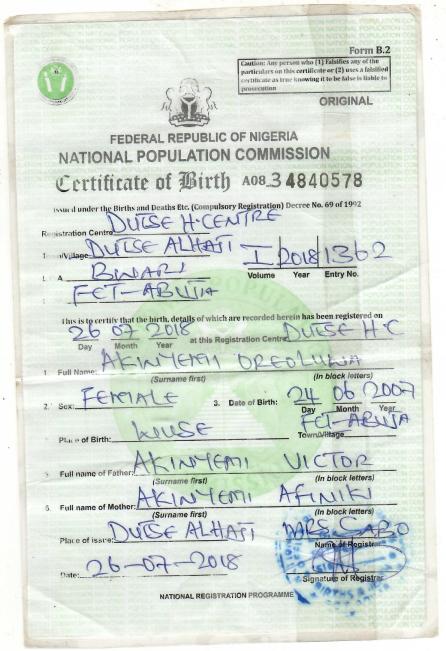 Form B.2
Caution: Any person who (1) Falsifies any of the
particulars on this certificate or (2) uses a falsified
certificate as true knowing it to be false is liable to
prosecution
ORIGINAL
FEDERAL REPUBLIC OF NIGERIA
NATIONAL POPULATION COMMISSION
Certificate of Birth A08 34840578
issued under the Births and Deaths Etc. (Compulsory Registration) Decree No. 69 of 1992
Registration Centre DUTSE H. CENTRE
Town/Village DUTSE ALHAJI I 2018 1362
L A BWARI Volume Year Entry No.
FCT-ABUJA
This is to certify that the birth, details of which are recorded herein has been registered on
26 07 2018 at this Registration Centre DUTSE H.C
Day Month Year
1. Full Name: AKINYEMI OREOLUWA
(Surname first) (In block letters)
2. Sex: FEMALE 3. Date of Birth: 24 06 2007
Day Month Year
Place of Birth: WUSE FCT-ABUJA
Town/Village
Full name of Father: AKINYEMI VICTOR
(Surname first) (In block letters)
Full name of Mother: AKINYEMI AFINIKI
(Surname first) (In block letters)
Place of issue: DUTSE ALHAJI MRS. GABO
Name of Registrar
Date: 26-07-2018
Signature of Registrar
NATIONAL REGISTRATION PROGRAMME